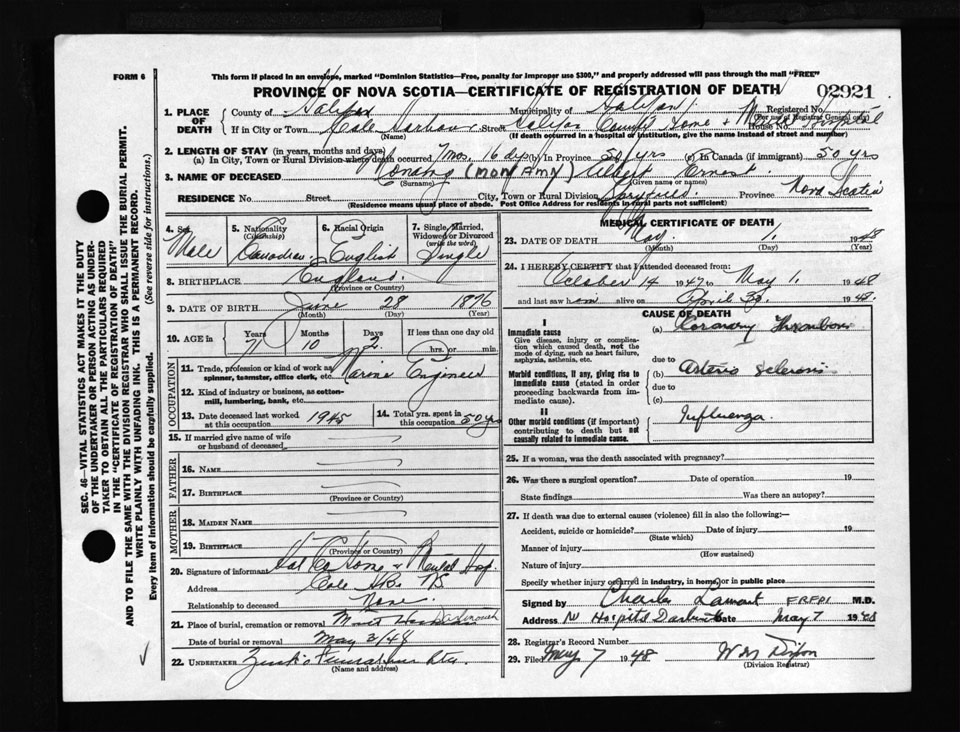 FORM 6
This form if placed in an envelope, marked "Dominion Statistics—Free, penalty for improper use $300," and properly addressed will pass through the mail "FREE"
PROVINCE OF NOVA SCOTIA—CERTIFICATE OF REGISTRATION OF DEATH
02921
1. PLACE OF DEATH
County of Halifax Municipality of Halifax Registered No.
(For use of Registrar General only)
If in City or Town Cole Harbour Street Halifax County Home + Mental Hospital House No.
(Name) (If death occurred in a hospital or institution, give the name instead of street and number)
2. LENGTH OF STAY (in years, months and days)
(a) In City, Town or Rural Division where death occurred 7 mos. 16 dys (b) In Province 50 yrs (c) In Canada (if immigrant) 50 yrs
3. NAME OF DECEASED (MONAMY) Albert Ernest
(Surname) (Given name or names)
RESIDENCE No. Street City, Town or Rural Division Province Nova Scotia
(Residence means usual place of abode. Post Office Address for residents in rural parts not sufficient)
4. Sex Male
5. Nationality (Citizenship) Canadian
6. Racial Origin English
7. Single, Married, Widowed or Divorced (write the word) Single
8. BIRTHPLACE England
(Province or Country)
9. DATE OF BIRTH June 28 1876
(Month) (Day) (Year)
10. AGE in Years 71 Months 10 Days 2 If less than one day old hrs. or min.
OCCUPATION
11. Trade, profession or kind of work as spinner, teamster, office clerk, etc. Marine Engineer
12. Kind of industry or business, as cotton-mill, lumbering, bank, etc.
13. Date deceased last worked at this occupation 1945
14. Total yrs. spent in this occupation 50 yrs
15. If married give name of wife or husband of deceased
FATHER
16. NAME
17. BIRTHPLACE
(Province or Country)
MOTHER
18. MAIDEN NAME
19. BIRTHPLACE
(Province or Country)
20. Signature of informant Hal Co Home + Mental Hosp.
Address Cole Hbr NS
Relationship to deceased None
21. Place of burial, cremation or removal Mount Dartmouth
Date of burial or removal May 3/48
22. UNDERTAKER
(Name and address)
MEDICAL CERTIFICATE OF DEATH
23. DATE OF DEATH May 1 1948
(Month) (Day) (Year)
24. I HEREBY CERTIFY that I attended deceased from:
October 14 1947 to May 1. 1948
and last saw him alive on April 30 1948.
CAUSE OF DEATH
I
Immediate cause
Give disease, injury or complication which caused death, not the mode of dying, such as heart failure, asphyxia, asthenia, etc.
(a) Coronary Thrombosis
due to
Morbid conditions, if any, giving rise to immediate cause (stated in order proceeding backwards from immediate cause).
(b) Arterio Sclerosis
due to
(c)
II
Other morbid conditions (if important) contributing to death but not causally related to immediate cause.
Influenza.
25. If a woman, was the death associated with pregnancy?
26. Was there a surgical operation? Date of operation 19
State findings Was there an autopsy?
27. If death was due to external causes (violence) fill in also the following:—
Accident, suicide or homicide? Date of injury 19
(State which)
Manner of injury
(How sustained)
Nature of injury
Specify whether injury occurred in industry, in home or in public place
Signed by Charles Lamont M.D.
Address NS Hospital Dartmouth Date May 7 1948
28. Registrar's Record Number
29. Filed May 7 1948 W M Dixon
(Division Registrar)
SEC. 46—VITAL STATISTICS ACT MAKES IT THE DUTY
OF THE UNDERTAKER OR PERSON ACTING AS UNDER-
TAKER TO OBTAIN ALL THE PARTICULARS REQUIRED
IN THE "CERTIFICATE OF REGISTRATION OF DEATH"
AND TO FILE THE SAME WITH THE DIVISION REGISTRAR WHO SHALL ISSUE THE BURIAL PERMIT.
WRITE PLAINLY WITH UNFADING INK. THIS IS A PERMANENT RECORD.
Every item of information should be carefully supplied. (See reverse side for instructions.)